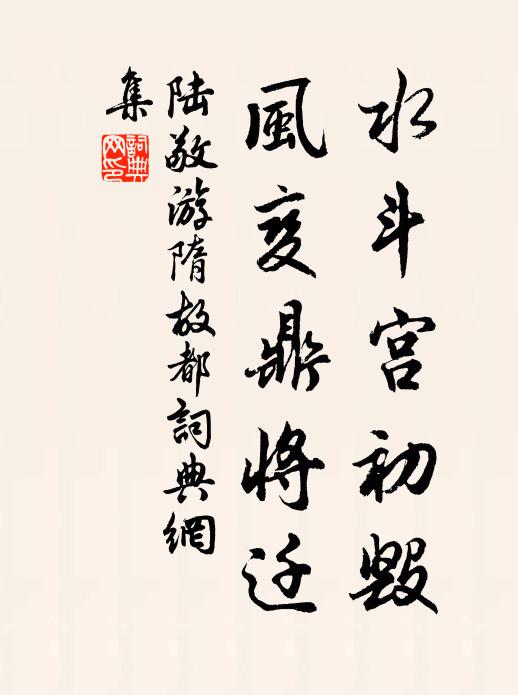 水斗宫初毁
風变鼎将迁
陆敬游隋故都詞典網
集
詞典網印